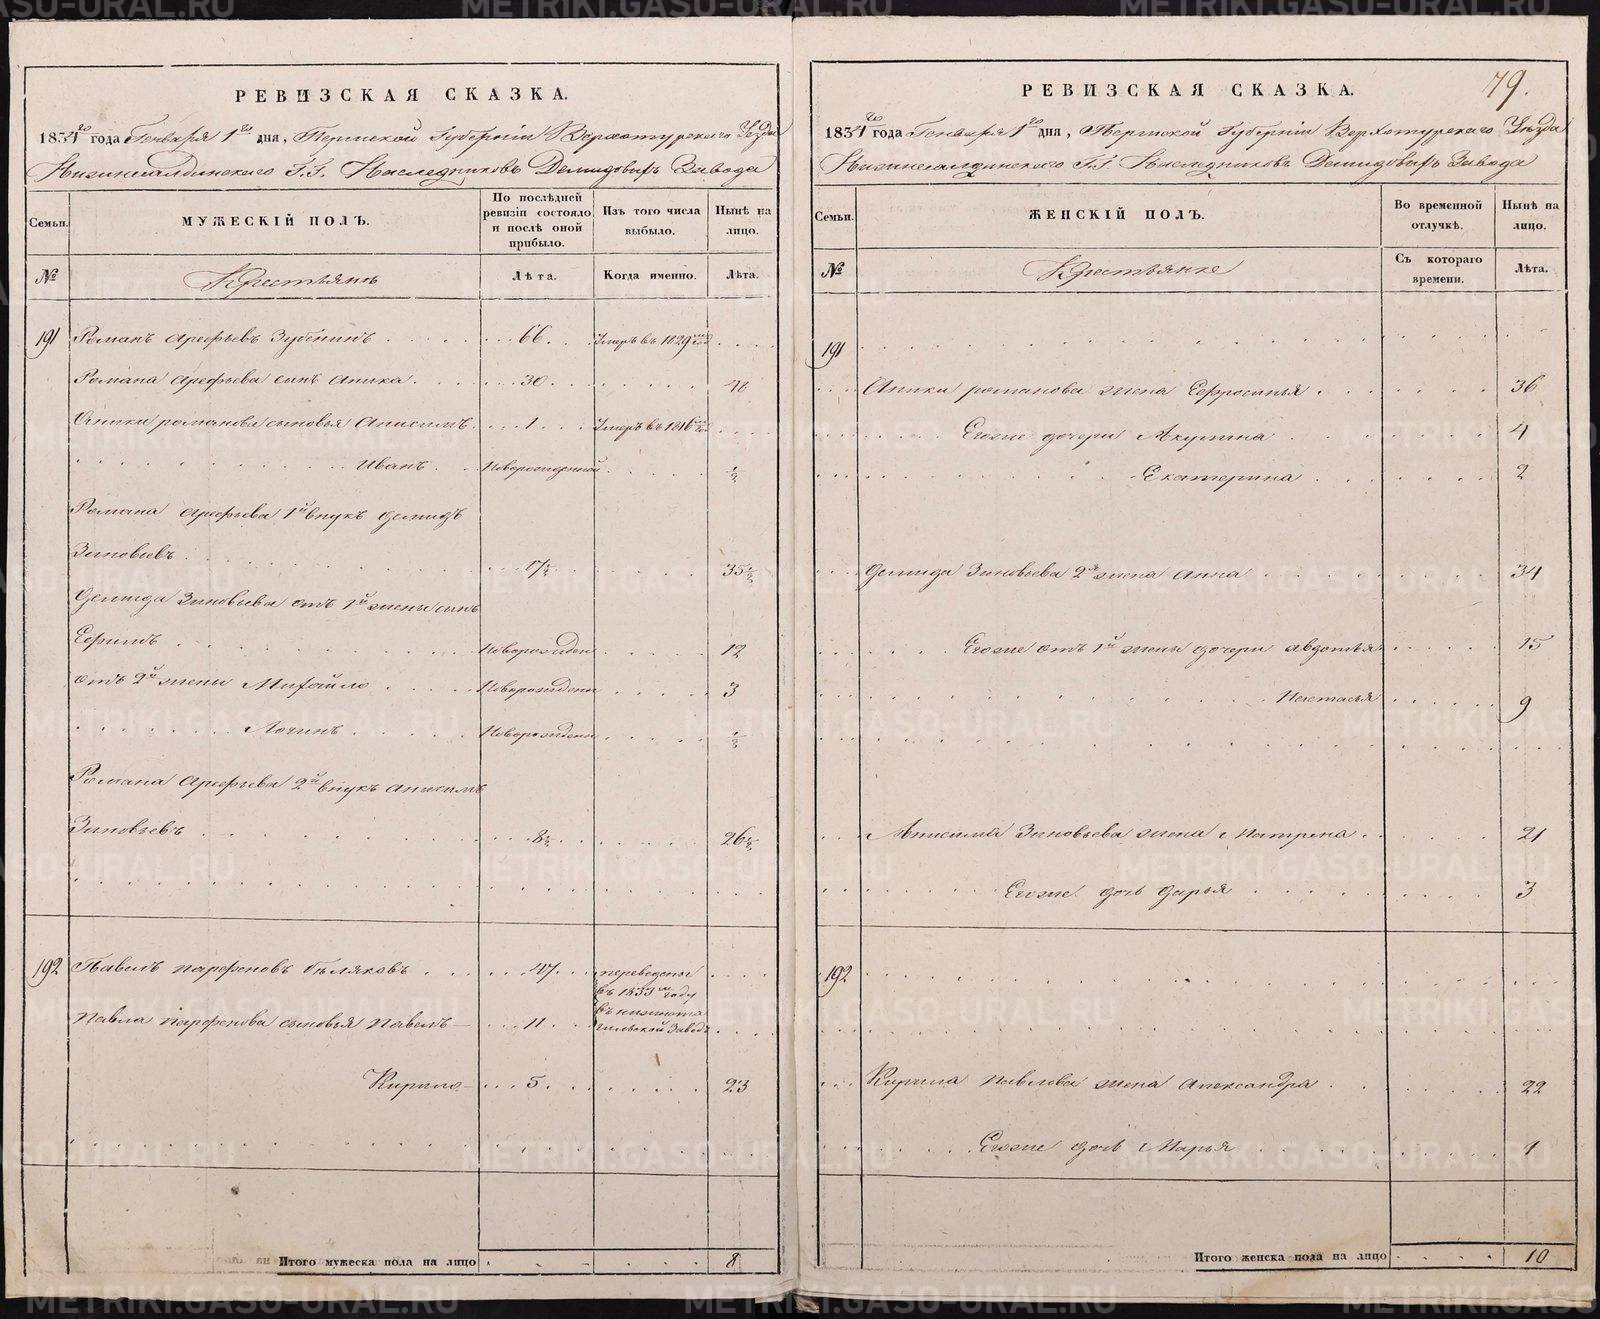 РЕВИЗСКАЯ СКАЗКА.
1834го года Генваря 1го дня, Пермской Губернiи Верхотурскаго Уезда
Нижнесалдинскаго Г.Г. Наследниковъ Демидовыхъ Завода
Семьи.
МУЖЕСКІЙ ПОЛЪ.
По послѣдней ревизіи состояло и послѣ оной прибыло.
Изъ того числа выбыло.
Нынѣ на лицо.
№
Крестьянъ
Лѣта.
Когда именно.
Лѣта.
191 Романъ Арефьевъ Зубнинъ 66. Умеръ въ 1829м год
Романа Арефьева сынъ Аника 30.
Аники романова сыновья Анисимъ 1 Умеръ въ 1816м год
Иванъ Новорожденной ½
Романа Арефьева 1й внукъ Демидъ
Зиновьевъ 17½ 35½
Демида Зиновьева отъ 1й жены сынъ
Ефимъ Новорожден 12
отъ 2й жены Михайло Новорожден 3
Логинъ Новорожден ½
Романа Арефьева 2й внукъ Анисимъ
Зиновьевъ 8½ 26½
192 Павелъ парфеновъ бѣляковъ 47 переведены
въ 1833м году
Павла парфенова сыновья Павелъ 11 въ нижнета
гильской Заводъ
Кирило 5. 23
Итого мужеска пола на лицо 8
79.
РЕВИЗСКАЯ СКАЗКА.
1834го года Генваря 1го дня, Пермской Губернiи Верхотурскаго Уѣзда
Нижнесалдинскаго Г.Г. Наследниковъ Демидовыхъ Завода
Семьи.
ЖЕНСКІЙ ПОЛЪ.
Во временной отлучкѣ.
Нынѣ на лицо.
№
Крестьянке
Съ котораго времени.
Лѣта.
191
Аники романова жена Ефросинья 36
Егоже дочери Акулина 4
Екатерина 2
Демида Зиновьева 2я жена Анна 34
Егоже отъ 1й жены дочери Авдотья 15
Настасья 9
Анисима Зиновьева жена Матрена 21
Егоже дочь Дарья 3
192
Кирила Павлова жена Александра 22
Егоже дочь Марья 1
Итого женска пола на лицо 10
METRIKI.GASO-URAL.RU